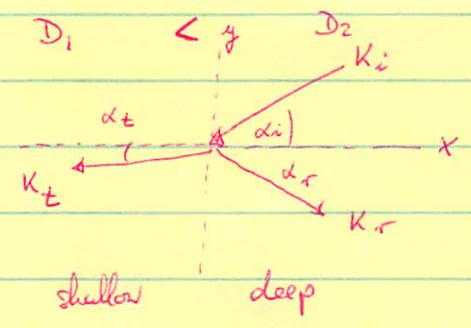 D₁ < y D₂
Kᵢ
αₜ αᵢ
x
Kₜ αᵣ
Kᵣ
shallow deep